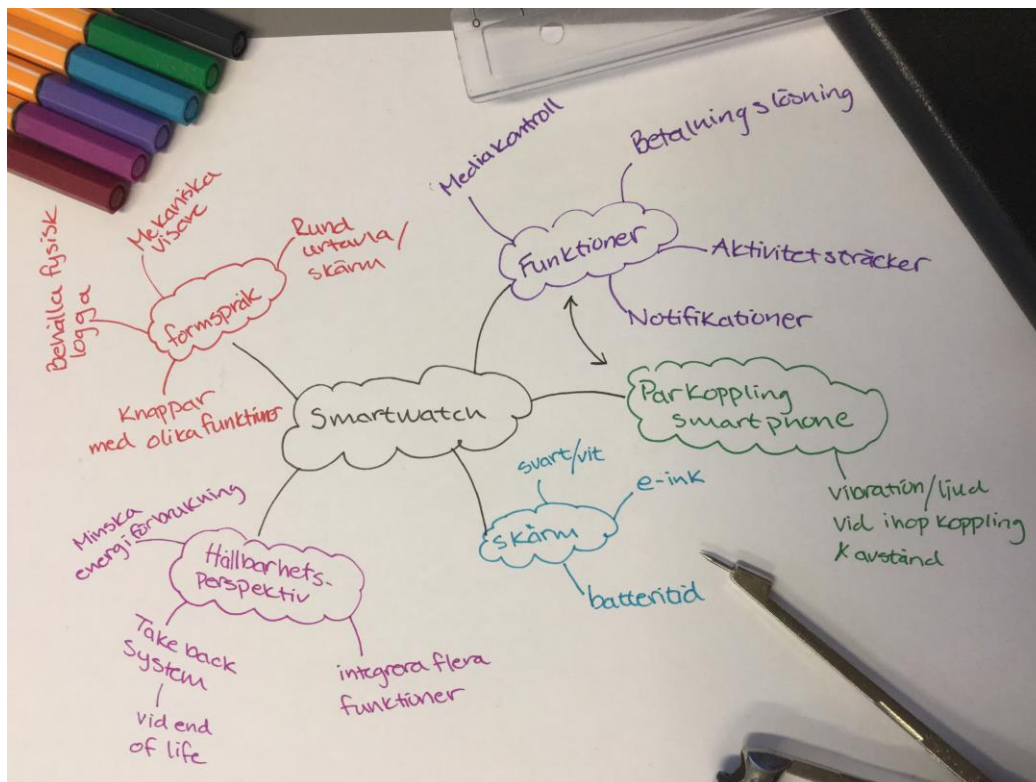 Smartwatch
formspråk
Mekaniska
visare
Rund
urtavla/
skärm
Behålla fysisk
logga
Knappar
med olika funktioner
Funktioner
Mediakontroll
Betalningslösning
Aktivitetsträcker
Notifikationer
Parkoppling
smartphone
vibration/ljud
vid ihopkoppling
avstånd
skärm
svart/vit
e-ink
batteritid
Hållbarhets-
perspektiv
Minska
energiförbrukning
Take back
System
vid end
of life
integrera flera
funktioner